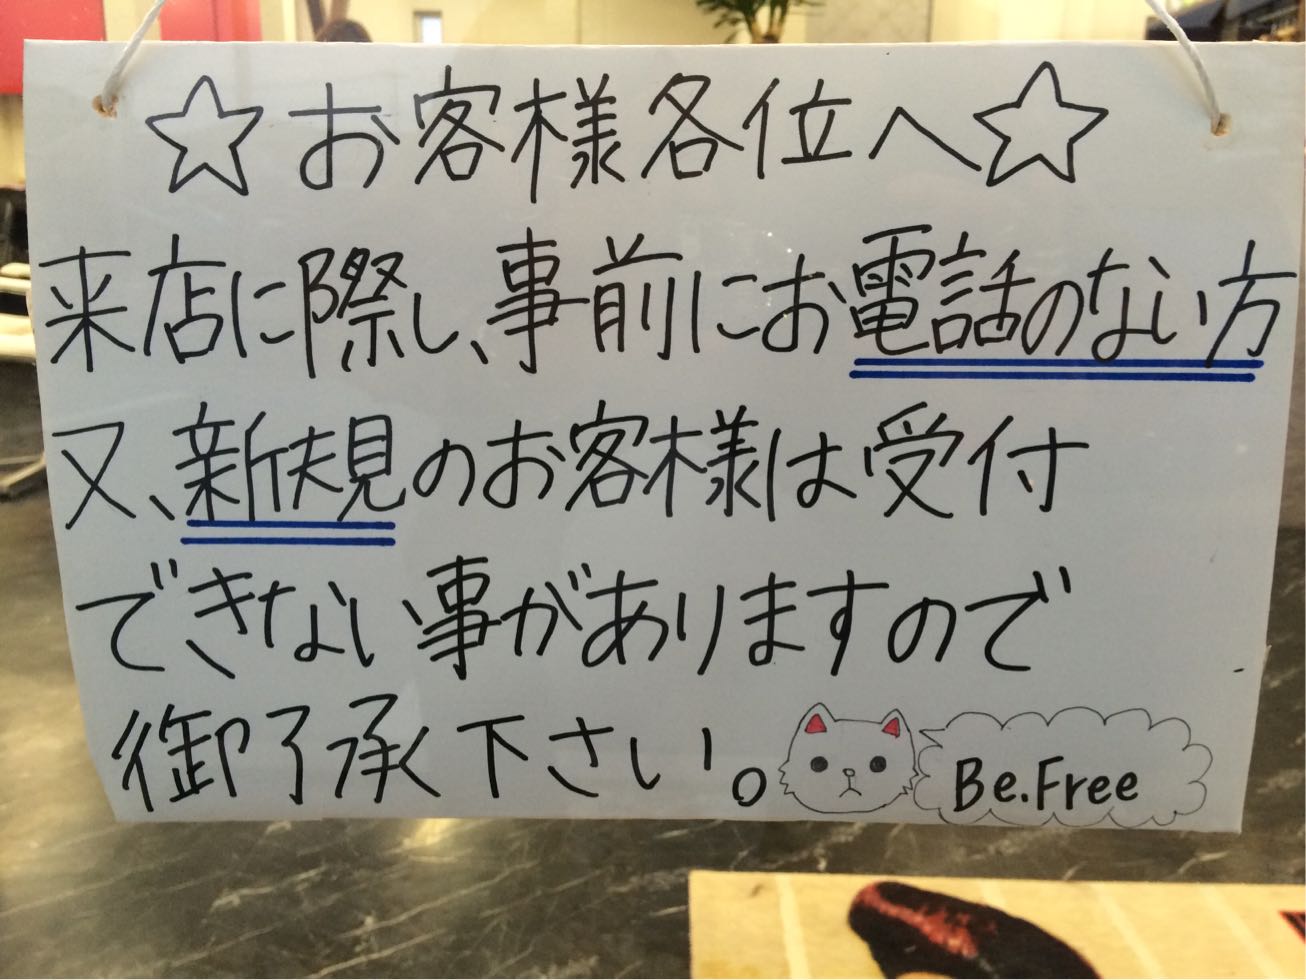 ☆お客様各位へ☆
来店に際し、事前にお電話のない方
又、新規のお客様は受付
できない事がありますので
御了承下さい。
Be.Free